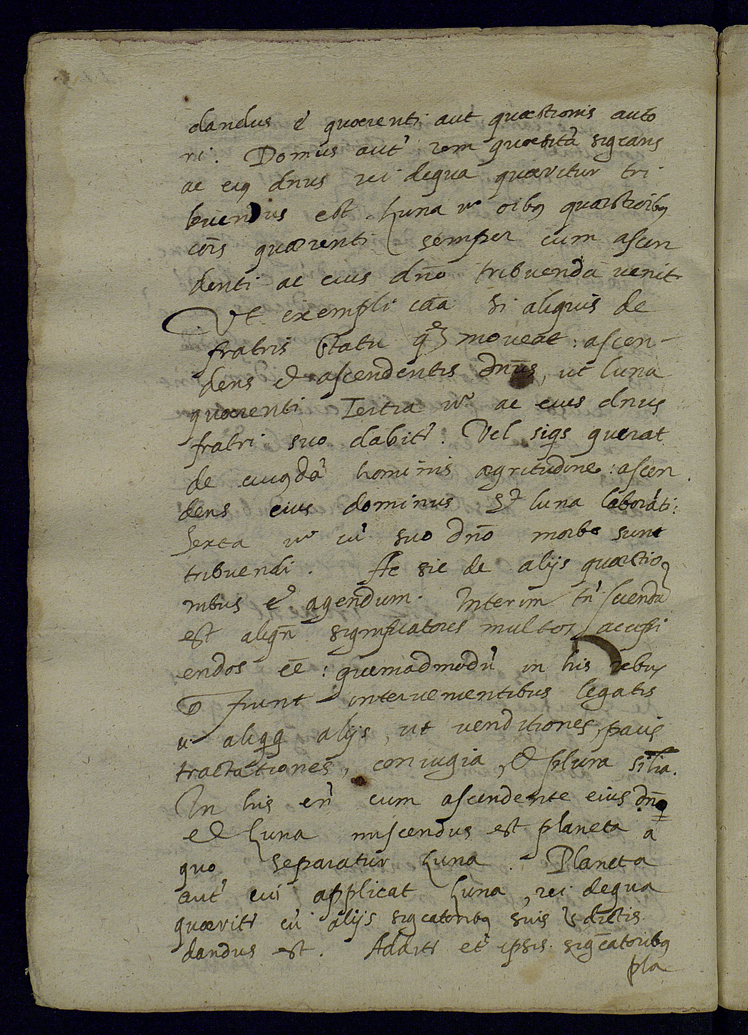 dandus ē quaerenti aut quaestionis auto
ri. Domus aut' rem quaesitā sigcans
ac eiq dnus rei de qua quaeritur tri
buendus est. Luna v° oibq quaestioibq
cōis quaerenti semper cum ascen
denti ac eius dn̄o tribuenda venit
Ut exempli cāa si aliquis de
fratris statu moveat: ascen-
dens et ascendentis dn̄us, ut luna
quaerenti Tertia v° ac eius dnus
fratri suo dabitr. Vel siqs querat
de cuiqdā hominis aegritudine: ascen
dens eius dominus et luna laborāti:
Sexta v° cū suo dn̄o morbo sunt
tribuendi. Ac sic de alijs quaestio
nibus ē agendum. Interim tn̄ sciendā
est aliqn̄ significatores multos accipi
endos eē: quemadmodū in his rebq
fiunt intervenientibus legatis
alijs, ut venditiones, pacis
tractationes, coniugia, et plura silīa.
In his en̄ cum ascendente eius dn̄o
et Luna miscendus est planeta a
quo separatur Luna. Planeta
aut' cui applicat Luna, rei de qua
quaeritr cū alijs sigcatoribq suis dictis
dandus est. Additr et ipsis sigcatoribq
pla